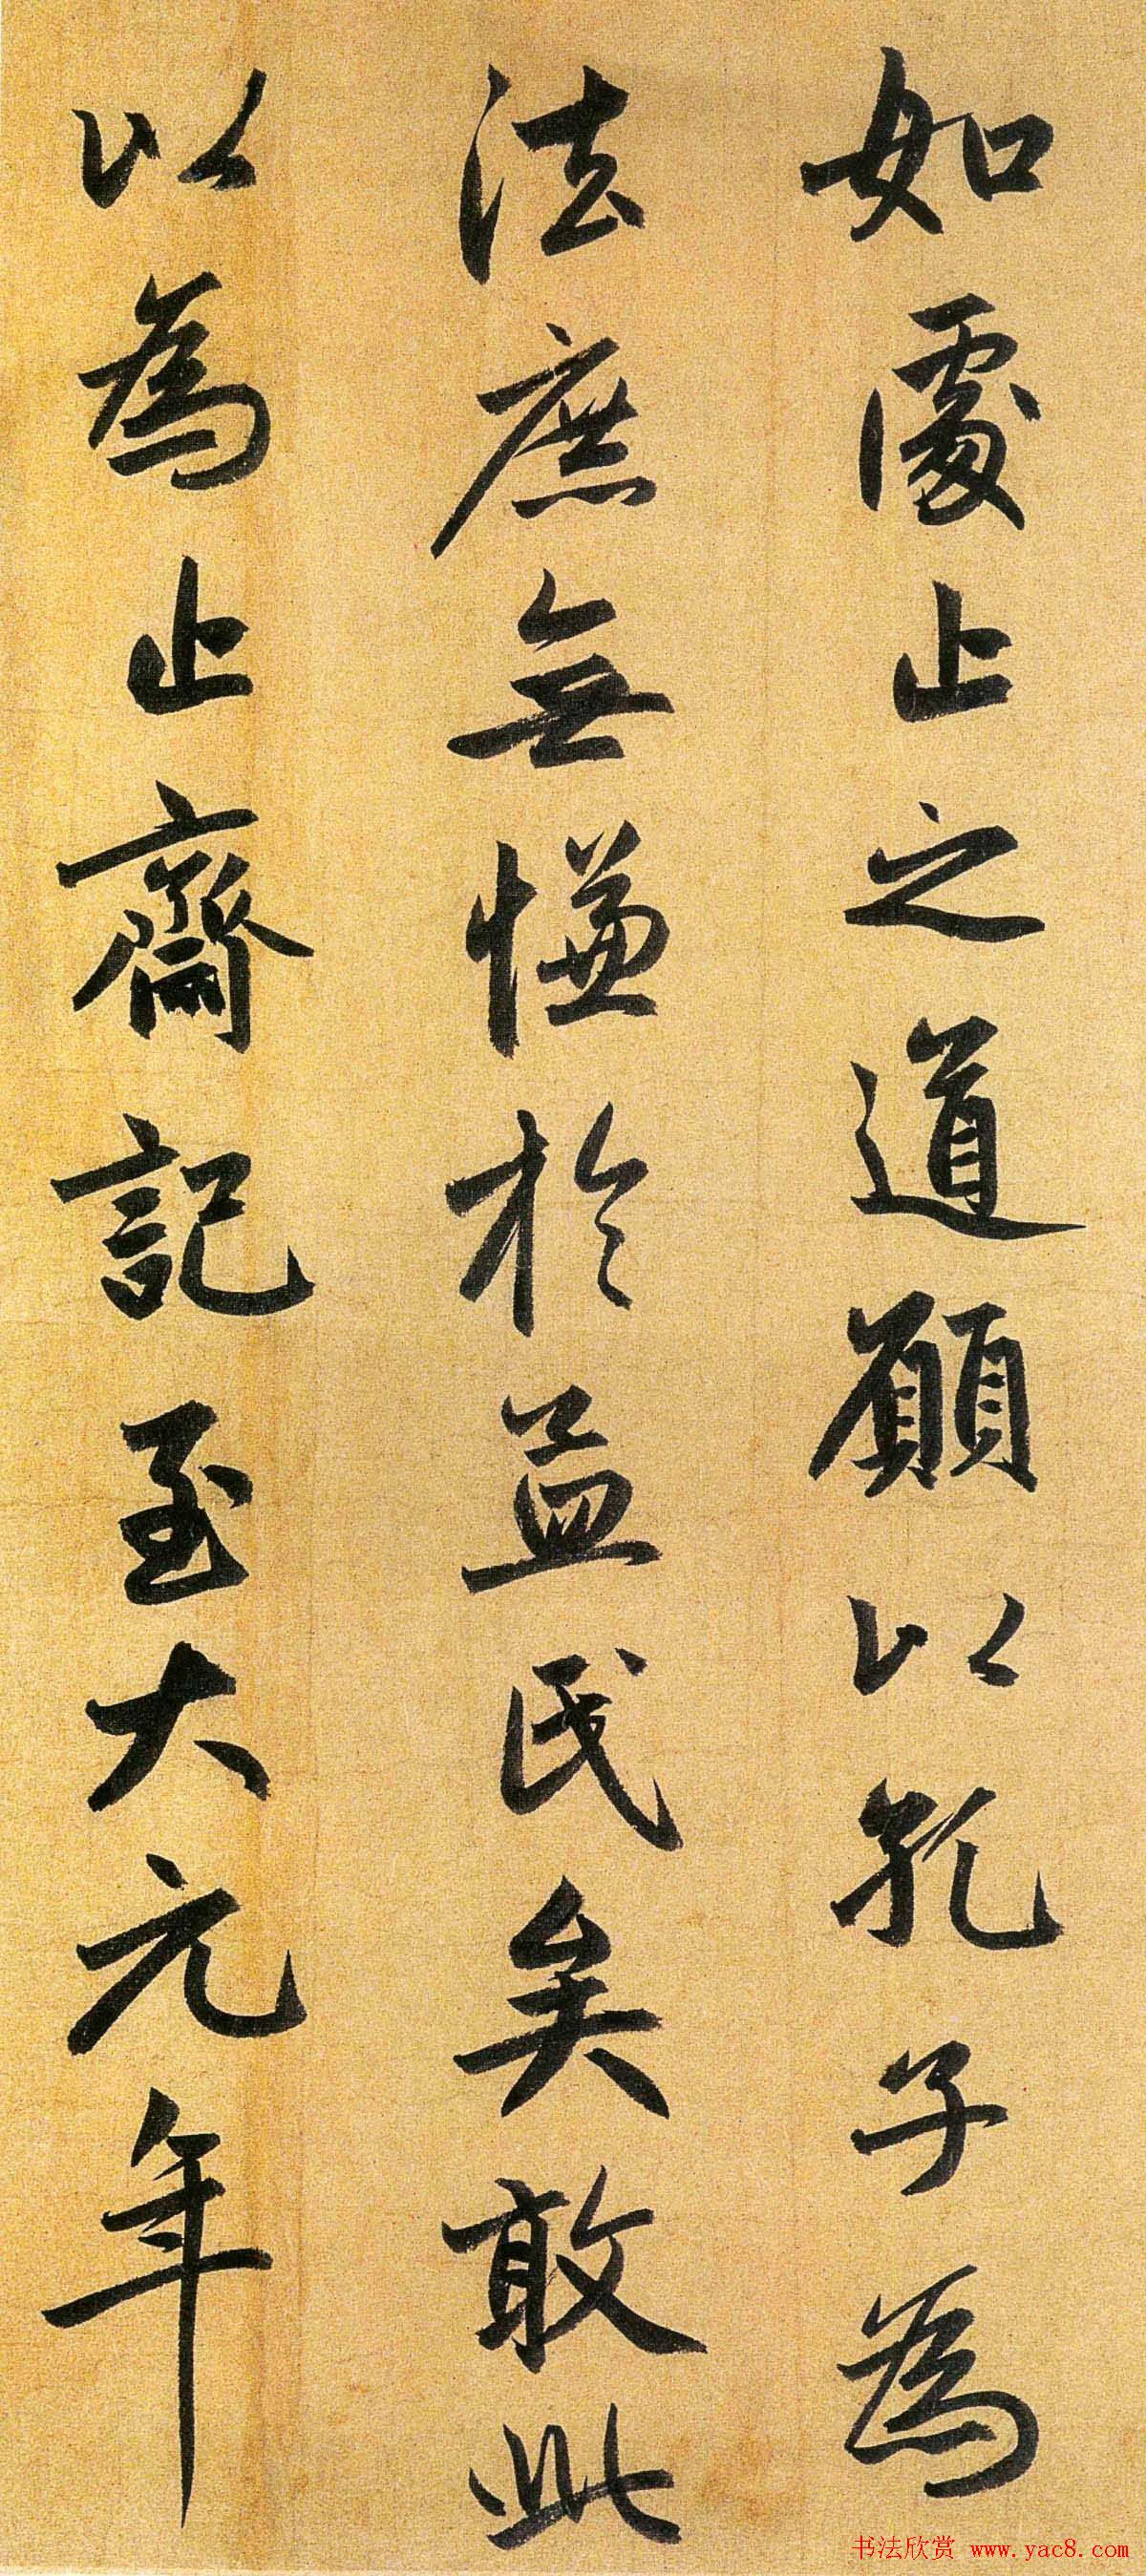 如處止之道願以孔子為
法庶無慊於益民矣敢此
以為止齋記至大元年
书法欣赏 www.yac8.com